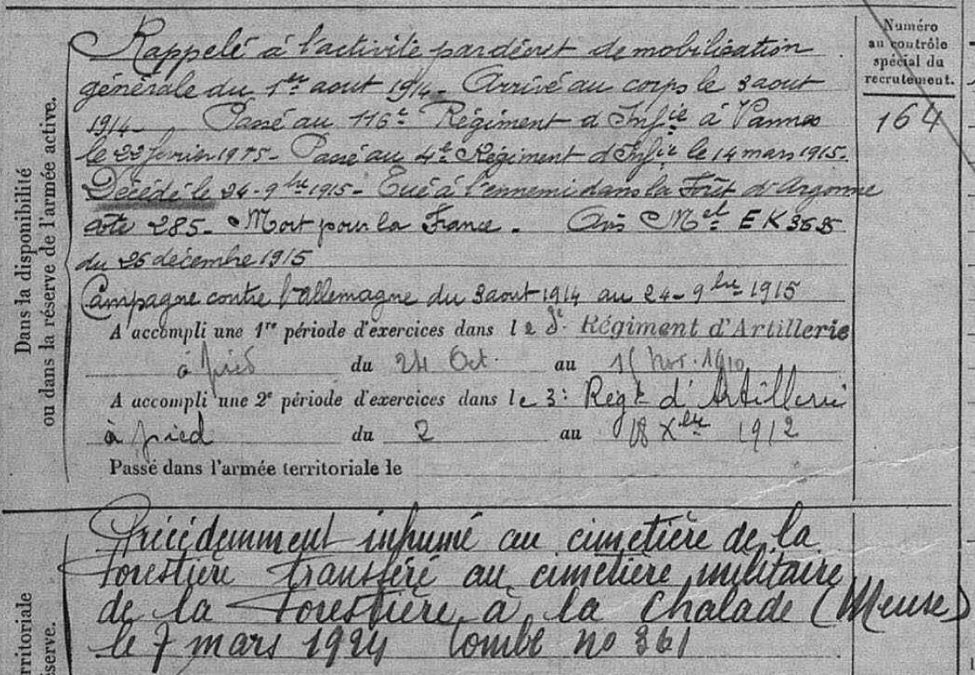 Numéro
au contrôle
spécial du
recrutement.
164
Dans la disponibilité
ou dans la réserve de l'armée active.
Rappelé à l'activité par décret de mobilisation
générale du 1er aout 1914. Arrivé au corps le 3 aout
1914. Passé au 116e Régiment d'Infie à Vannes
le 22 fevrier 1915. Passé au 4e Régiment d'Infie le 14 mars 1915.
Décédé le 24-9bre 1915 - Tué à l'ennemi dans la Forêt d'Argonne
cote 285. Mort pour la France. Avis Met EK
du 26 décembre 1915
Campagne contre l'allemagne du 3 aout 1914 au 24-9bre 1915
A accompli une 1re période d'exercices dans le 3e Régiment d'Artillerie
à pied du 24 Oct. au Nov. 1910
A accompli une 2e période d'exercices dans le 3e Régt d'Artillerie
à pied du 2 au 18 Xbre 1912
Passé dans l'armée territoriale le
rritoriale
éserve.
Précédemment inhumé au cimetière de la
Forestière transféré au cimetière militaire
de la Forestière à la Chalade (Meuse)
le 7 mars 1924 tombe no 361